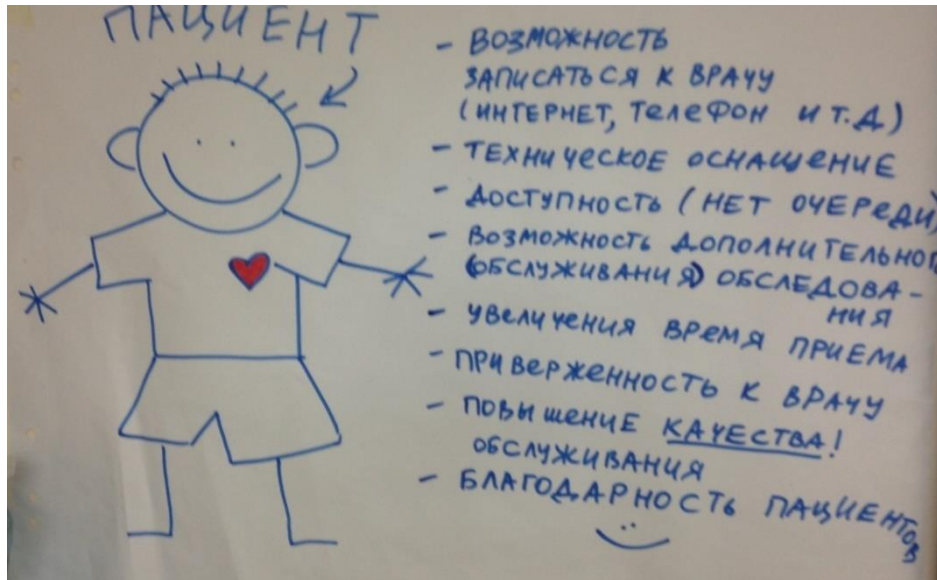 ПАЦИЕНТ
- ВОЗМОЖНОСТЬ
ЗАПИСАТЬСЯ К ВРАЧУ
(ИНТЕРНЕТ, ТЕЛЕФОН И Т.Д)
- ТЕХНИЧЕСКОЕ ОСНАЩЕНИЕ
- ДОСТУПНОСТЬ (НЕТ ОЧЕРЕДИ)
- ВОЗМОЖНОСТЬ ДОПОЛНИТЕЛЬНОГ
(ОБСЛУЖИВАНИЯ) ОБСЛЕДОВА-
НИЯ
- УВЕЛИЧЕНИЯ ВРЕМЯ ПРИЕМА
- ПРИВЕРЖЕННОСТЬ К ВРАЧУ
- ПОВЫШЕНИЕ КАЧЕСТВА!
ОБСЛУЖИВАНИЯ
- БЛАГОДАРНОСТЬ ПАЦИЕНТОВ